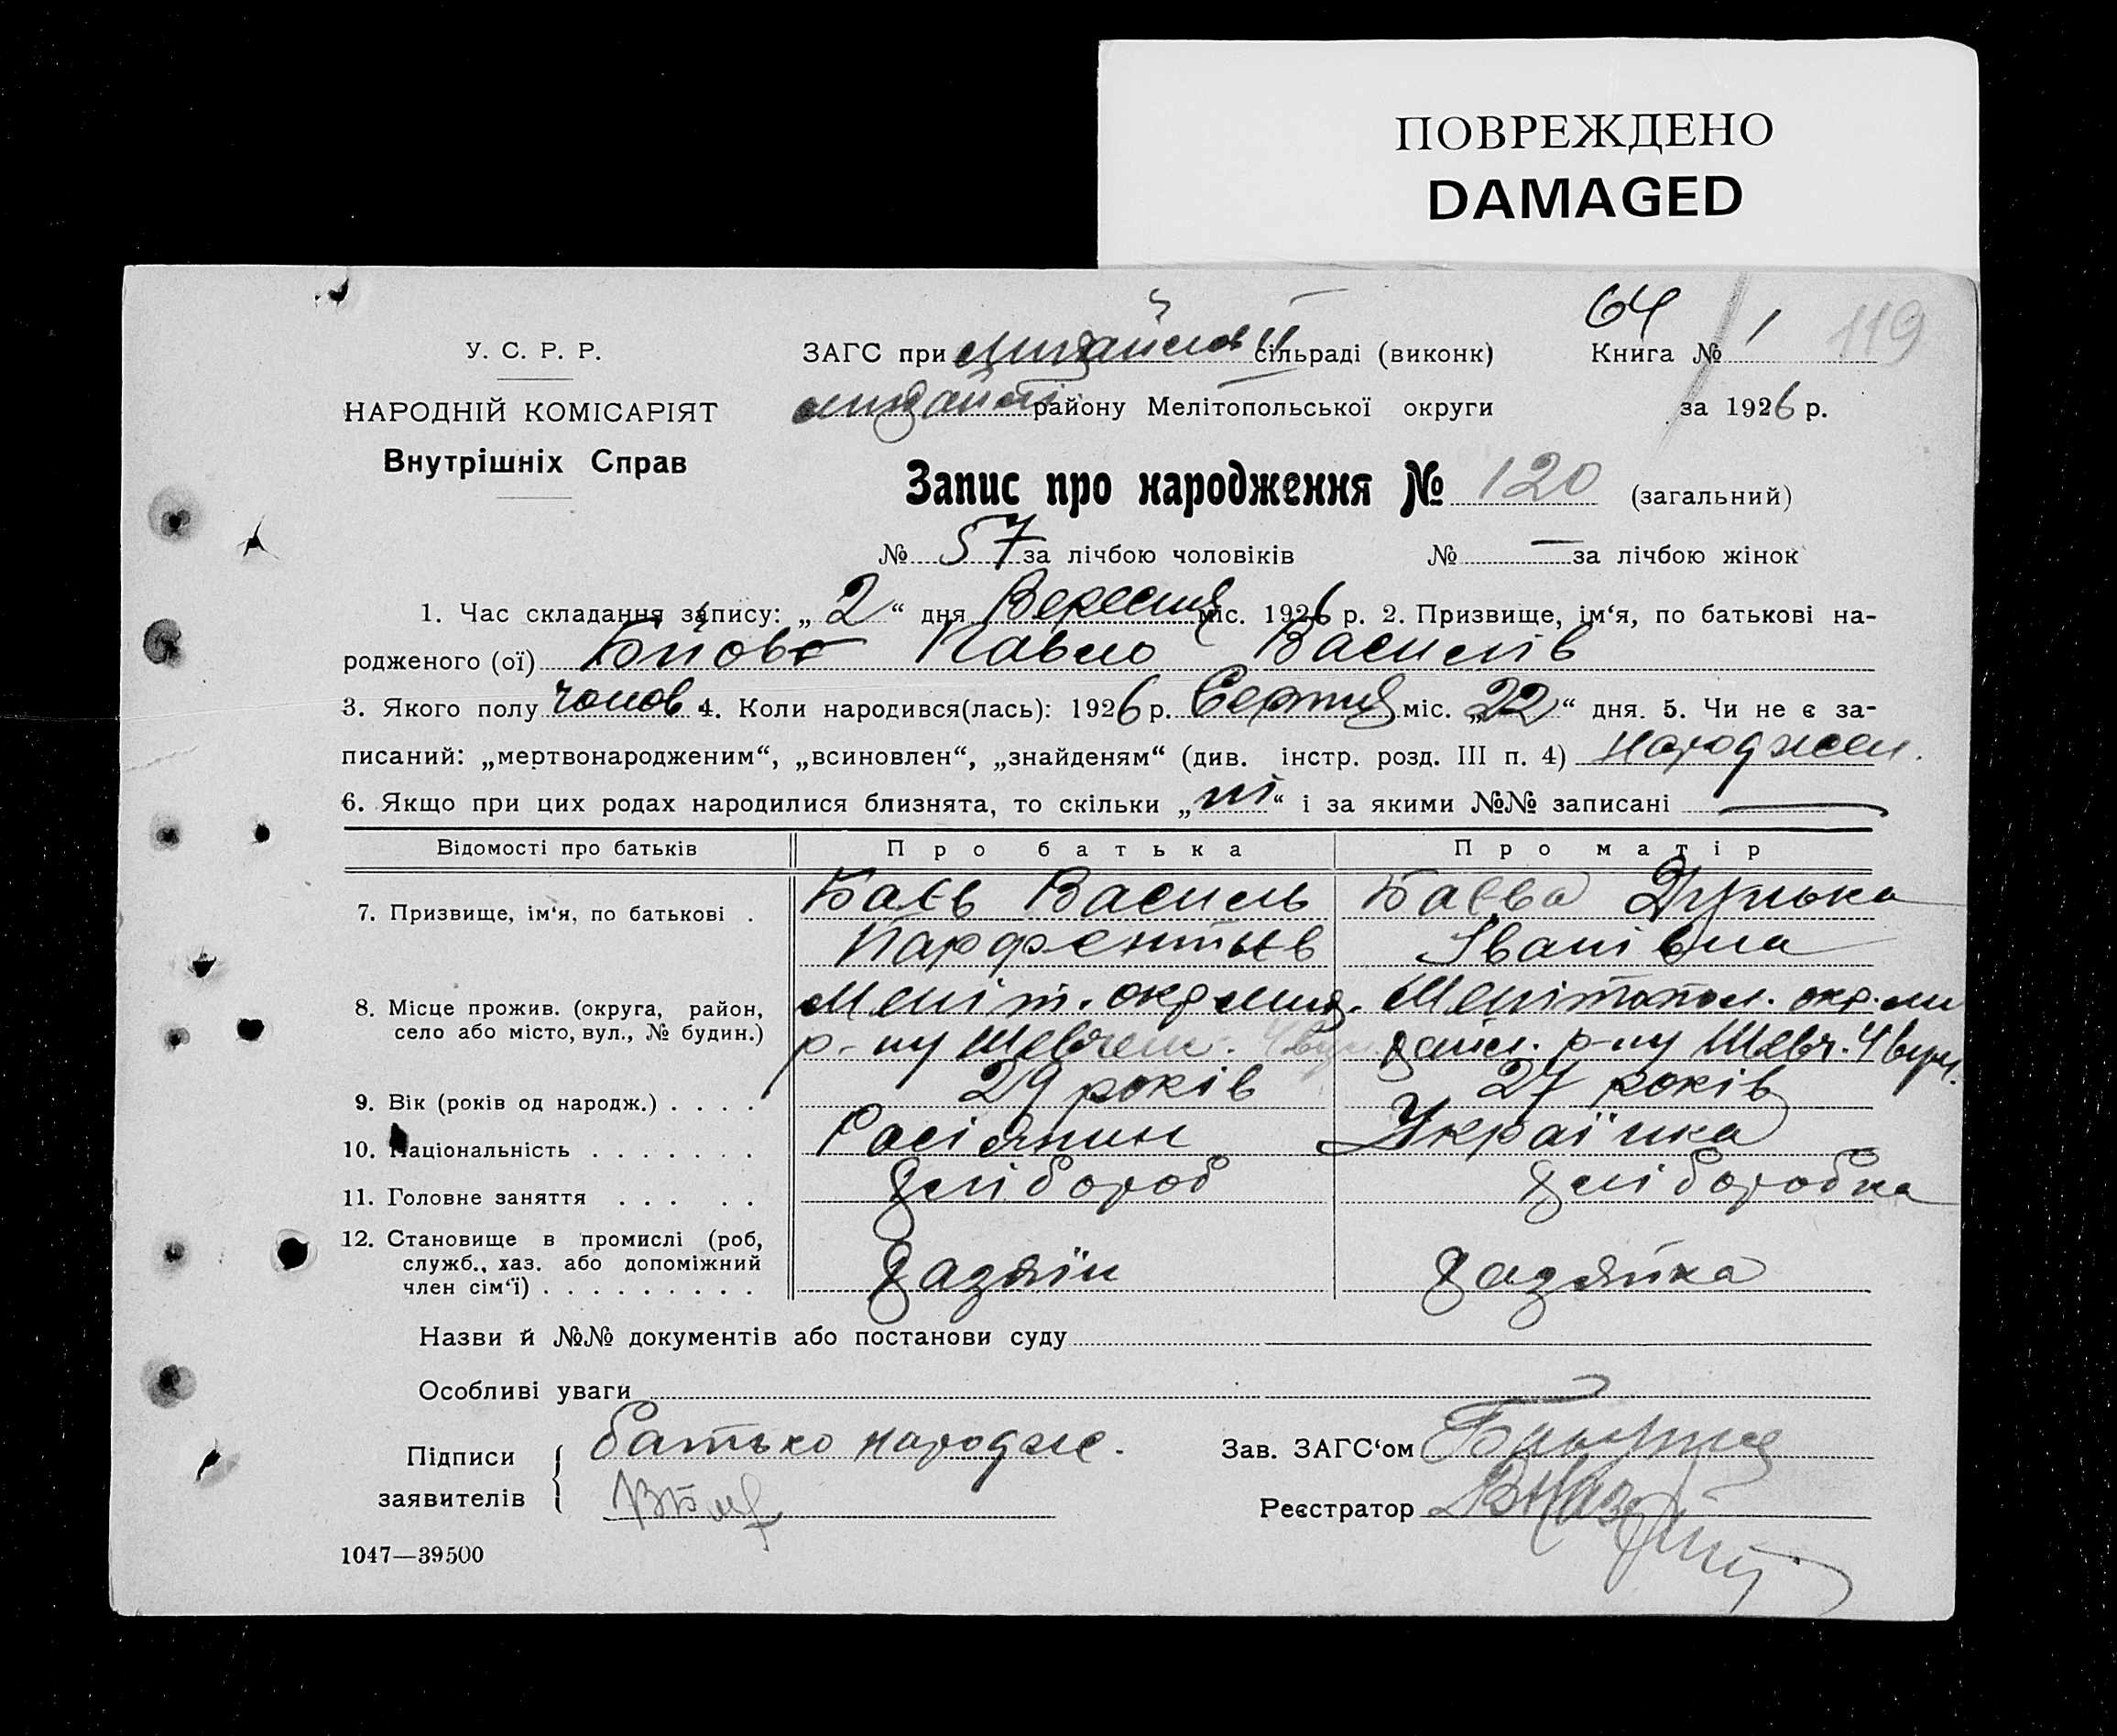 ПОВРЕЖДЕНО
DAMAGED
64
У. С. Р. Р.
ЗАГС при сільраді (виконк) Книга № 1 119
НАРОДНІЙ КОМІСАРІЯТ
району Мелітопольської округи за 1926 р.
Внутрішніх Справ
Запис про народження № 120 (загальний)
№ 57 за лічбою чоловіків № — за лічбою жінок
1. Час складання запису: „ 2 “ дня Вересня міс. 1926 р. 2. Призвище, ім‘я, по батькові на-
родженого (ої) Павло Василів
3. Якого полу чолов 4. Коли народився(лась): 1926 р. Серпня міс. „22“ дня. 5. Чи не є за-
писаний: „мертвонародженим“, „всиновлен“, „знайденям“ (див. інстр. розд. III п. 4) народжен.
6. Якщо при цих родах народилися близнята, то скільки „ні“ і за якими №№ записані —
Відомості про батьків Про батька Про матір
7. Призвище, ім‘я, по батькові . Баєв Василь Баєва Дунька
Парфентиів Іванівна
8. Місце прожив. (округа, район, Меліт. окр Мих. Мелітопол. окр. Ми
село або місто, вул., № будин.) р-ну Шевченк. хайл. р-ну Шевч. 4 вул.
9. Вік (років од народж.) . . . . 29 років 27 років
10. Національність . . . . . . . Расіянин Украінка
11. Головне заняття . . . . . хлібороб хліборобка
12. Становище в промислі (роб,
служб., хаз. або допоміжний хазяїн хазяйка
член сім‘ї) . . . . . . . . .
Назви й №№ документів або постанови суду
Особливі уваги
Підписи батько народже. Зав. ЗАГС‘ом
заявителів Реєстратор
1047—39500